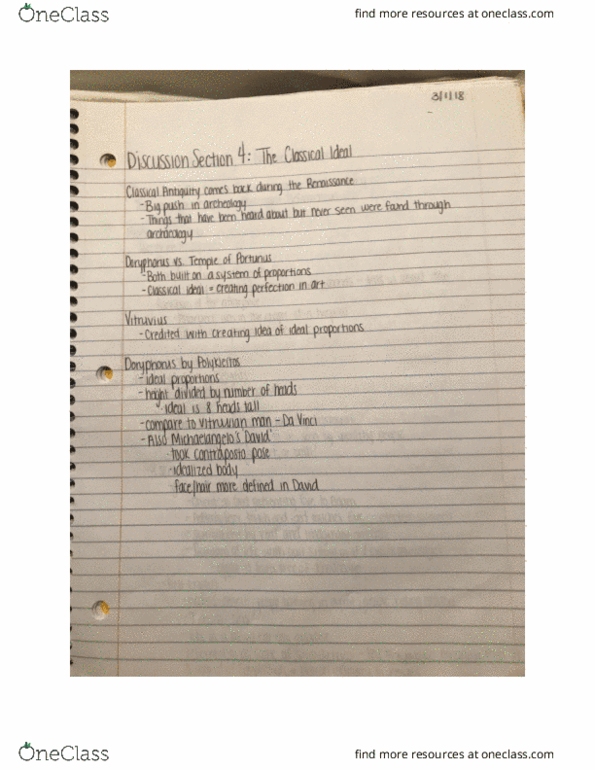 OneClass
find more resources at oneclass.com
3/1/18
Discussion Section 4: The Classical Ideal
Classical Antiquity comes back during the Renaissance
- Big push in archeology
- Things that have been heard about but never seen were found through
archaeology
Doryphorus vs. Temple of Portunus
- Both built on a system of proportions
- Classical ideal = creating perfection in art
Vitruvius
- Credited with creating idea of ideal proportions
Doryphorus by Polykleitos
- ideal proportions
- height divided by number of heads
ideal is 8 heads tall
- compare to Vitruvian man - Da Vinci
- Also Michaelangelo's 'David'
- took contraposto pose
- idealized body
face/hair more defined in David
OneClass
find more resources at oneclass.com